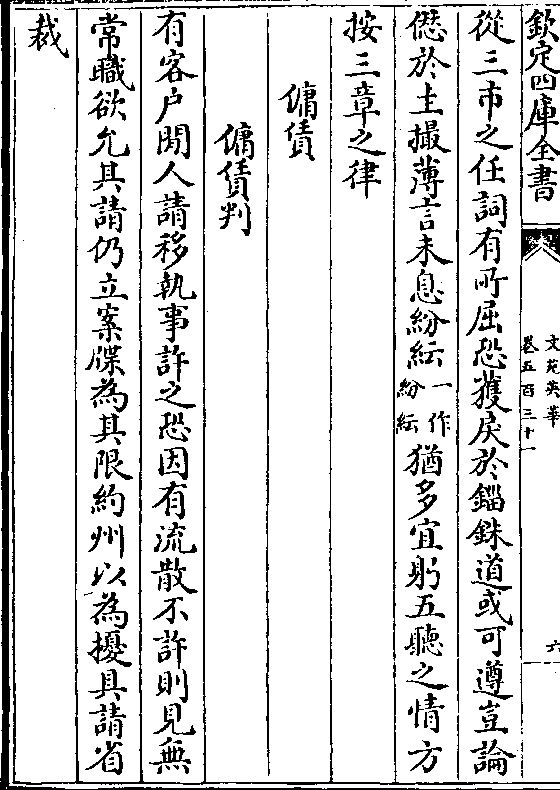 欽定四庫全書
文苑英華
卷五百三十一
六
從三市之任詞有所屈恐獲戾於錙銖道或可遵豈論
愆於土撮薄言未息紛紜一作紛紜猶多宜躬五聽之情方
按三章之律
傭賃
傭賃判
有客户閒人請移執事許之恐因有流散不許則見無
常職欲允其請仍立案牒為其限約州以為擾具請省
裁